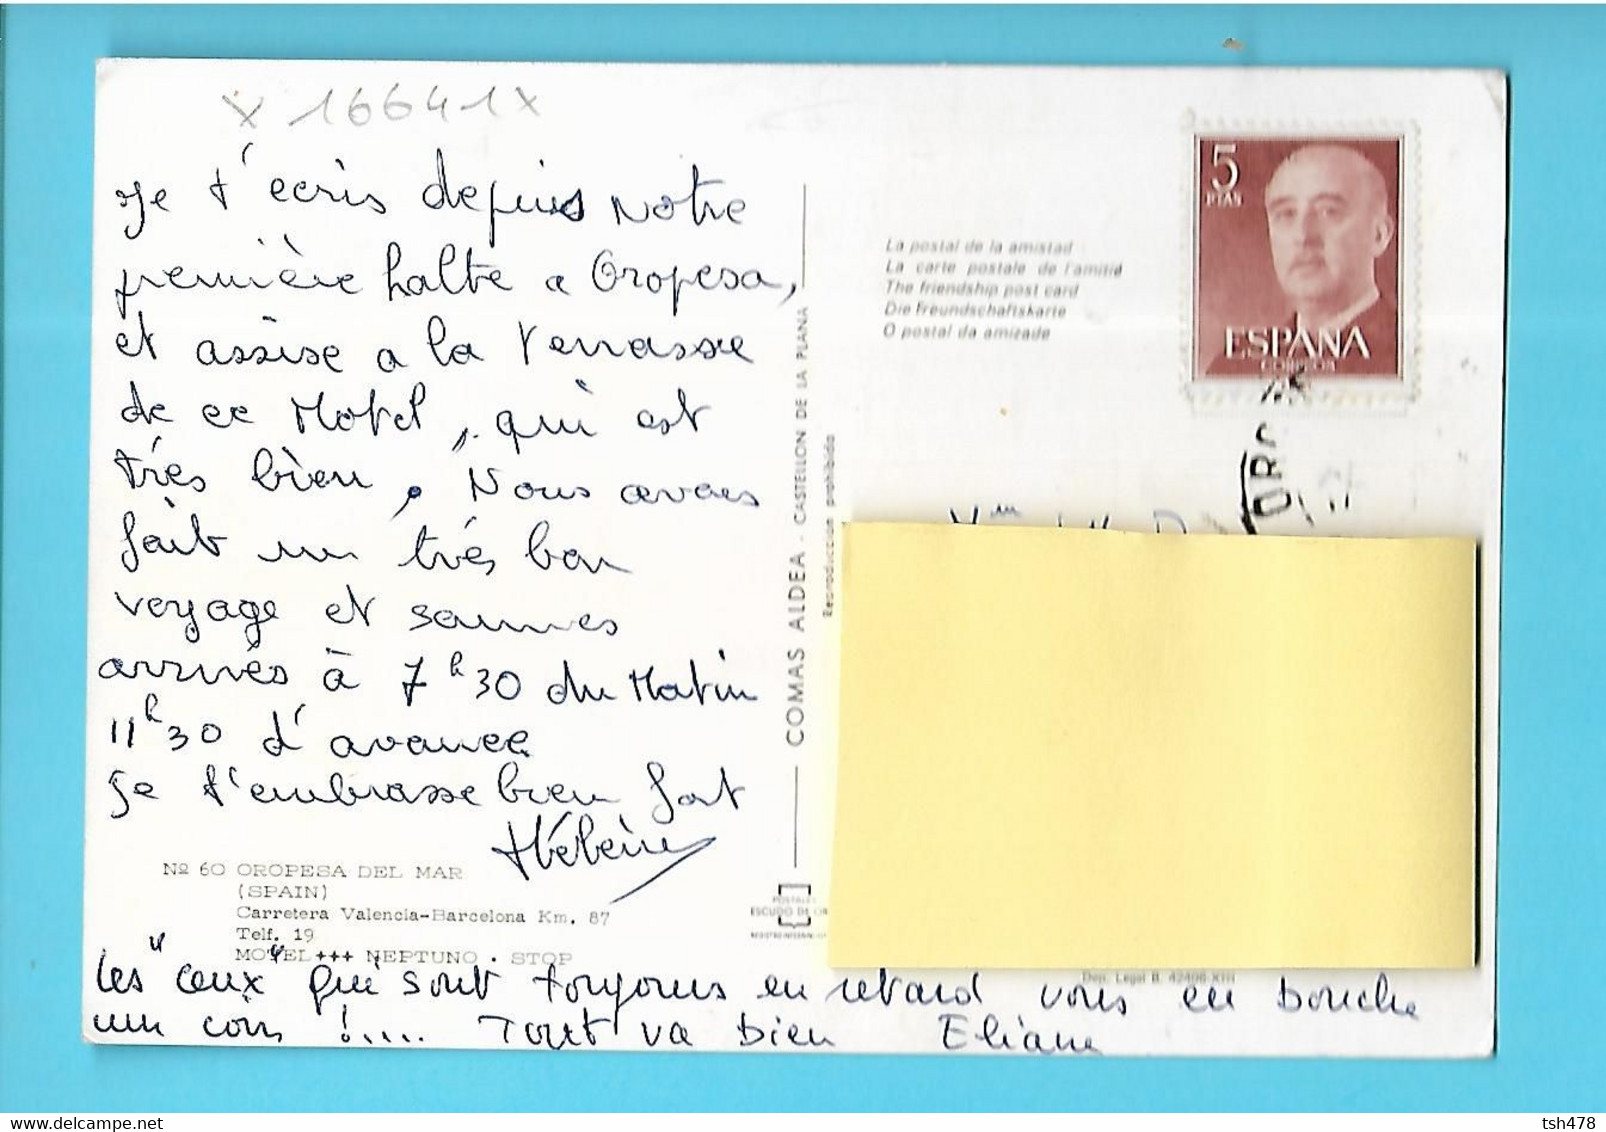 x 16641 x
Je t'ecris depuis Notre
première halte a Oropesa,
et assise a la Terrasse
de ce Motel, qui est
très bien, Nous avons
fait un très bon
voyage et sommes
arrivés à 7h30 du Matin
11h30 d'avance
Je t'embrasse bien fort
Hélène
Nº 60 OROPESA DEL MAR
(SPAIN)
Carretera Valencia-Barcelona Km. 87
Telf. 19
MOTEL +++ NEPTUNO . STOP
Les "ceux" qui sont toujours en retard vous en bouche
un coin !.... Tout va bien Eliane
COMAS ALDEA - CASTELLON DE LA PLANA
Reproduccion prohibida
POSTALES
ESCUDO DE OR
La postal de la amistad
La carte postale de l'amitié
The friendship post card
Die Freundschaftskarte
O postal da amizade
5
PTAS
ESPAÑA
CORREOS
Dep. Legal B. 42406-XIII
delcampe.net
tsh478